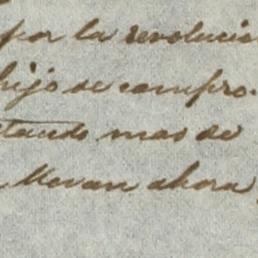 por la revolucio
hijo de compro.
tando mas de
llevan ahora